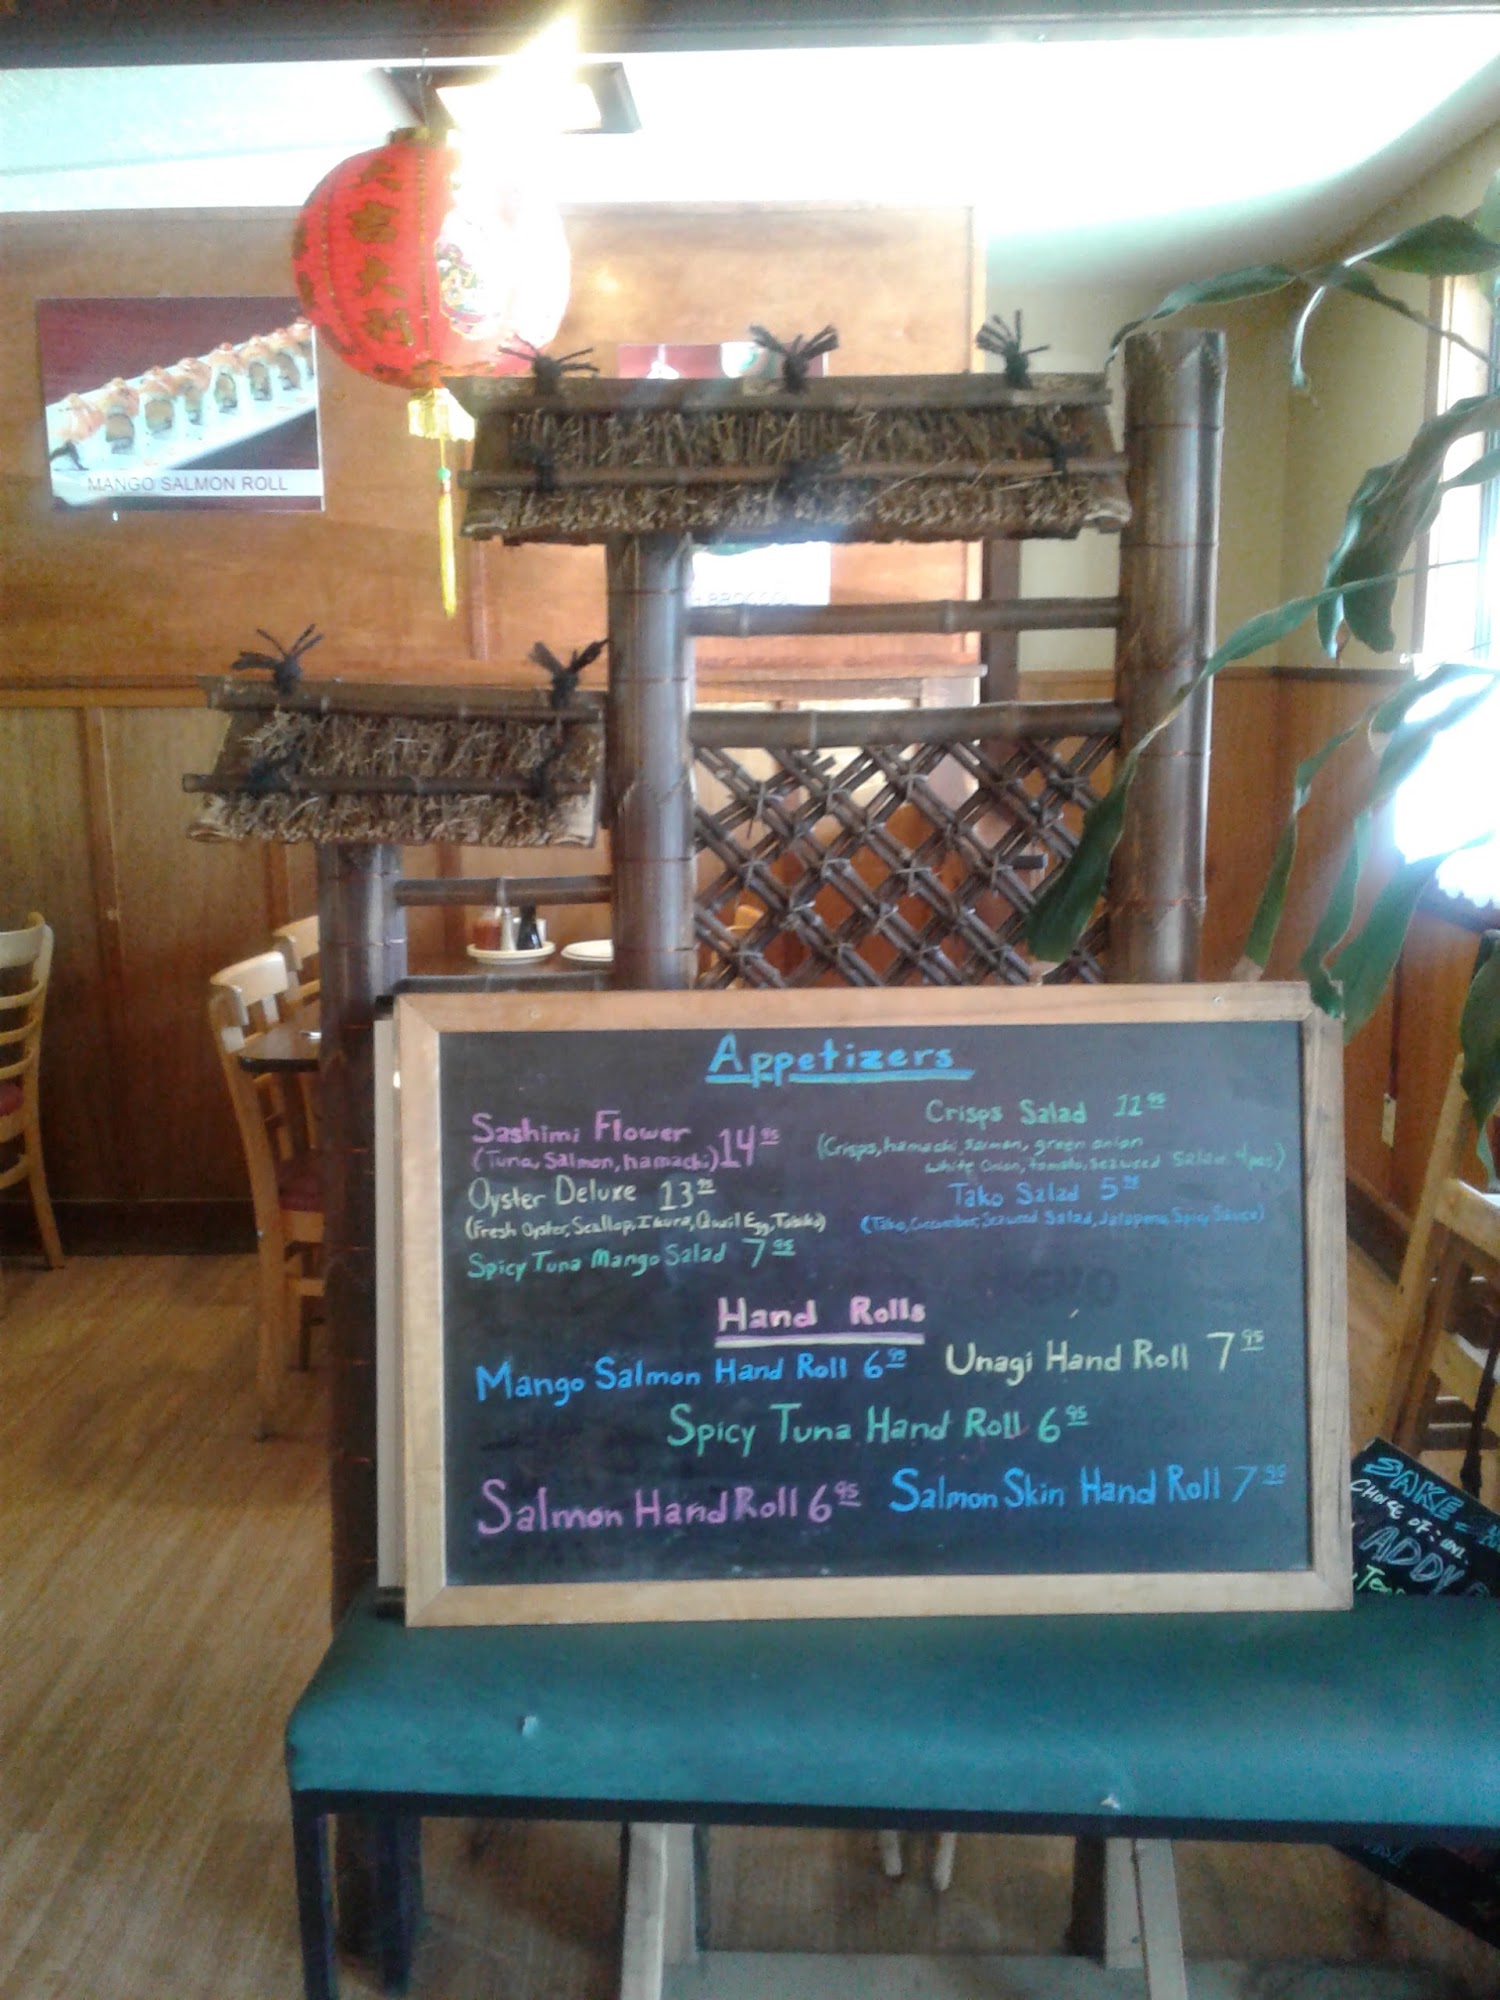 大吉大利
MANGO SALMON ROLL
Appetizers
Sashimi Flower
(Tuna, Salmon, hamachi) 14.95
Oyster Deluxe 13.95
(Fresh Oyster, Scallop, Ikura, Quail Egg, Tobiko)
Spicy Tuna Mango Salad 7.95
Crisps Salad 11.95
(Crisps, hamachi, salmon, green onion
white onion, tomato, seaweed salad 4pcs)
Tako Salad 5.95
(Tako, Cucumber, Seaweed Salad, Jalapeno, Spicy Sauce)
Hand Rolls
Mango Salmon Hand Roll 6.95
Unagi Hand Roll 7.95
Spicy Tuna Hand Roll 6.95
Salmon Hand Roll 6.95
Salmon Skin Hand Roll 7.95
SAKE
CHOICE OF:
ADDY